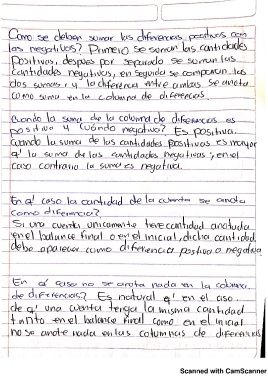 Como se deben sumar las diferencias positivas con
las negativas? Primero se suman las cantidades
positivas, despues por separado se suman las
cantidades negativas, en seguida se comparan las
dos sumas, y la diferencia entre ambas se anota
como suma en la columna de diferencias.
Cuando la suma de la columna de diferencias es
positiva y cuándo negativa? Es positiva
cuando la suma de las cantidades positivas es mayor
q' la suma de las cantidades negativas, en el
caso contrario la suma es negativa.
En q' caso la cantidad de la cuenta se anota
como diferencia?
Si una cuenta unicamente tiene cantidad anotada
en el balance final o en el inicial, dicha cantidad
debe aparecer como diferencia positiva o negativa
En q' caso no se anota nada en la columna
de diferencias? Es natural q' en el caso
de q' una cuenta tenga la misma cantidad
tanto en el balance final como en el inicial
no se anote nada en las columnas de diferencias
Scanned with CamScanner